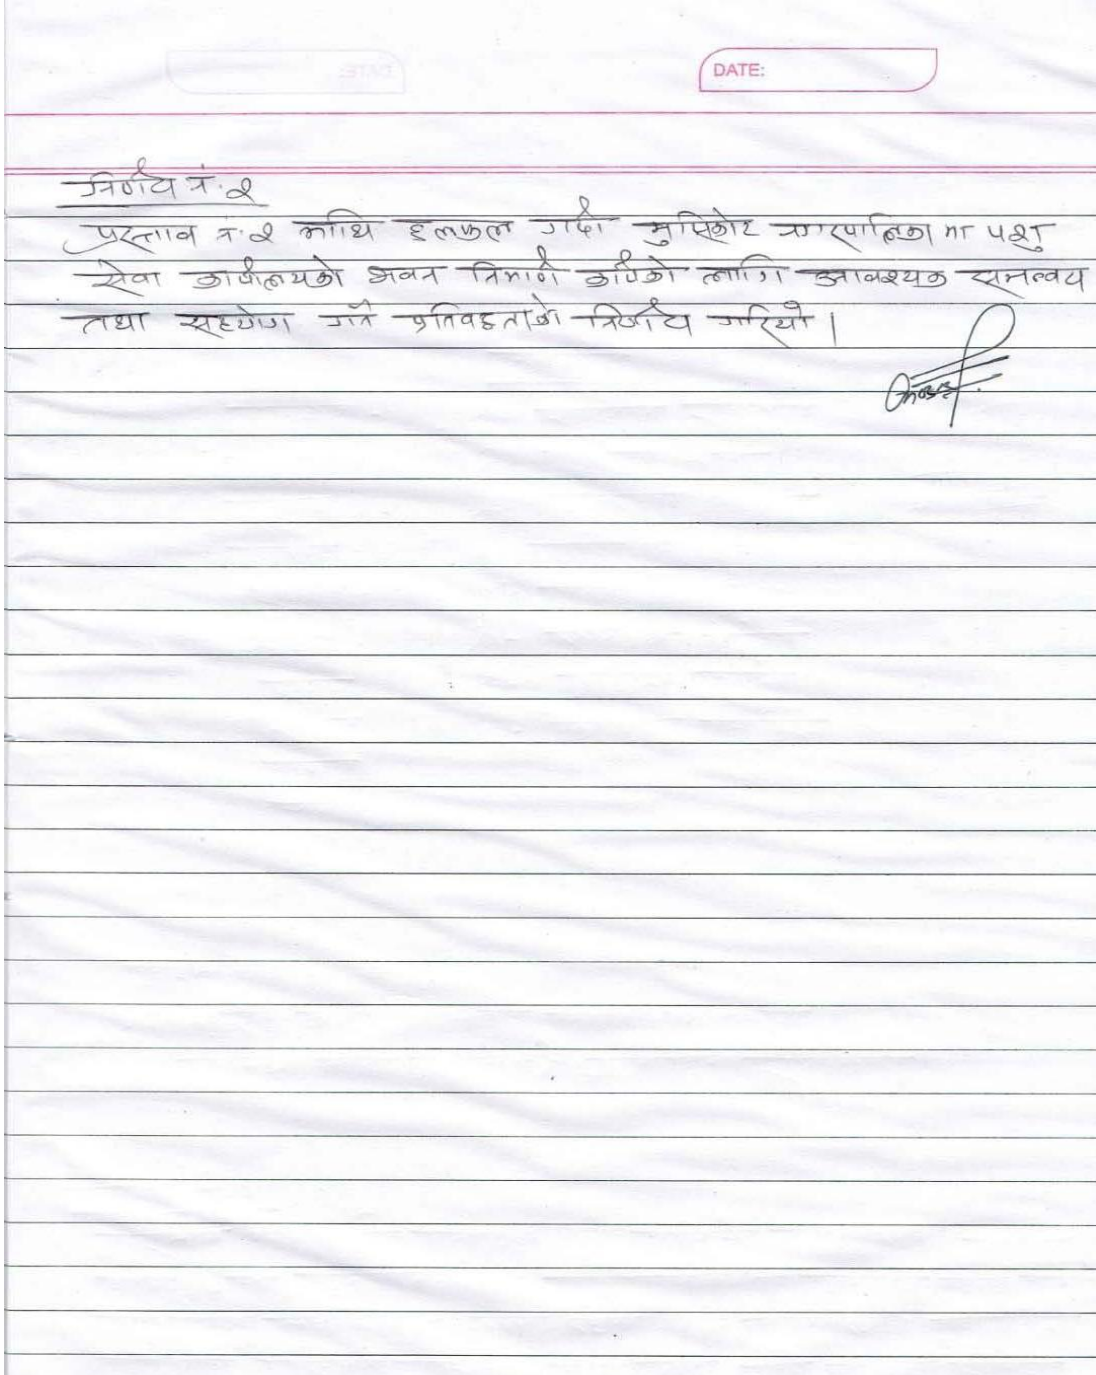 DATE:
निर्णय नं. २
प्रस्ताव नं. २ माथि छलफल गर्दा मुसिकोट नगरपालिका मा पशु
सेवा कार्यालयको भवन निर्माण कार्यको लागि आवश्यक समन्वय
तथा सहयोग गर्ने प्रतिवद्दताको निर्णय गरियो ।